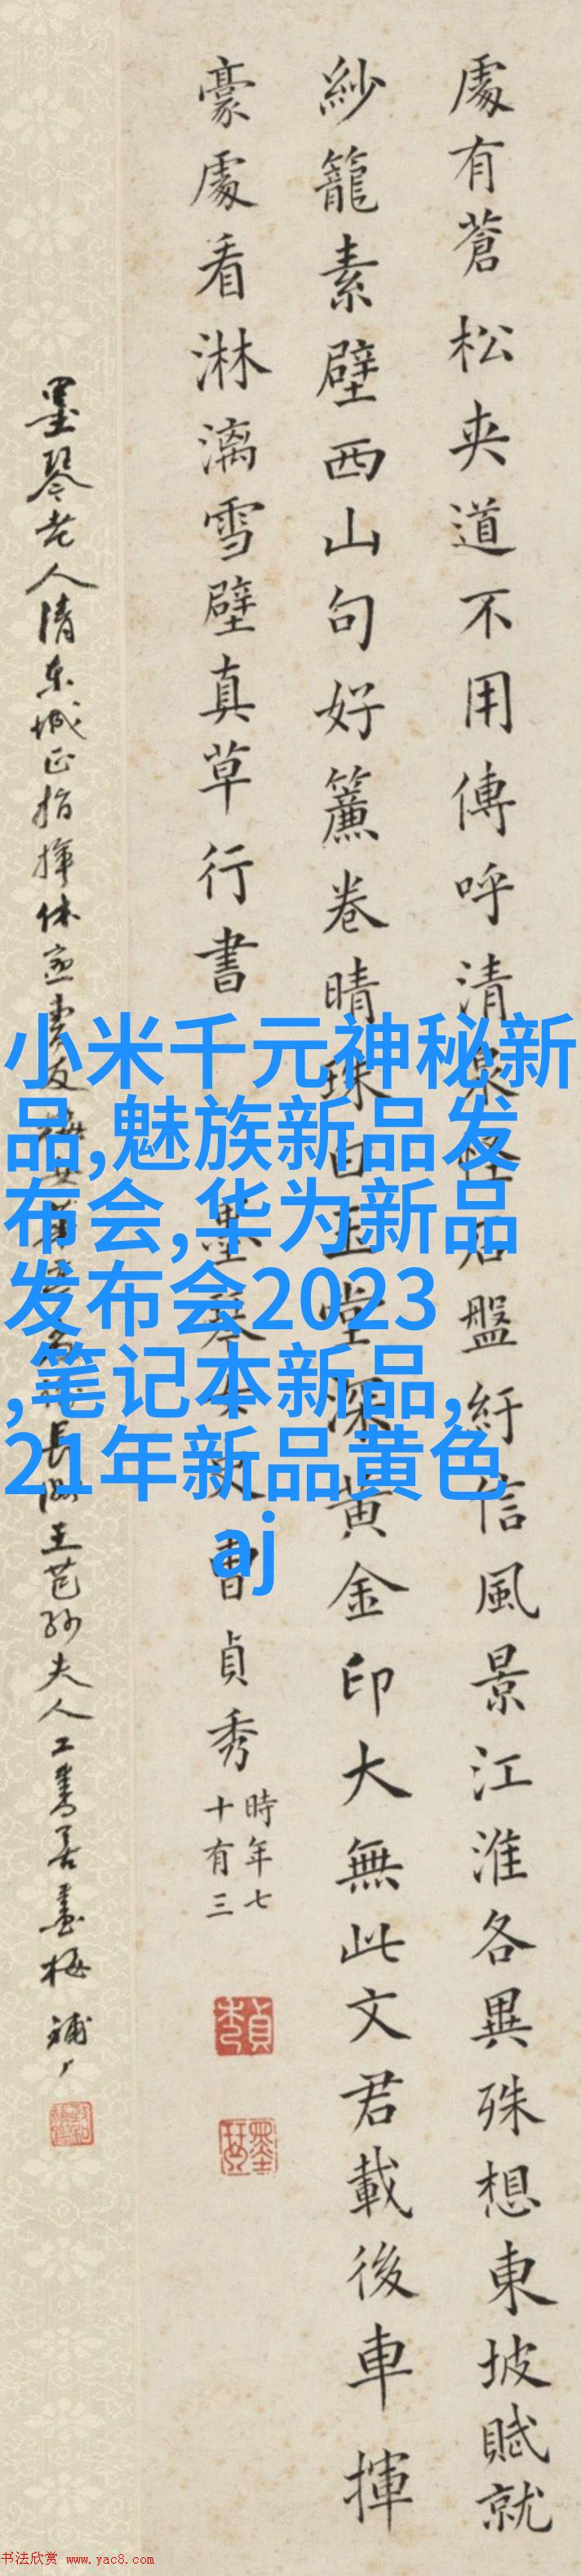 處有蒼松夾道不用傳呼清泉怪石盤紆信風景江淮各異殊想東坡賦就
紗籠素壁西山句好簾卷晴珠白玉堂深黃金印大無此文君載後車揮
豪處看淋漓雪壁真草行書
墨琴女史曹貞秀
時年七
十有三
貞秀
墨琴
墨琴老人清東城正指揮
長洲王芑孫夫人工書善畫梅
小米千元神秘新
品,魅族新品发
布会,华为新品
发布会2023
,笔记本新品,
21年新品黄色
aj
书法欣赏 www.yac8.com